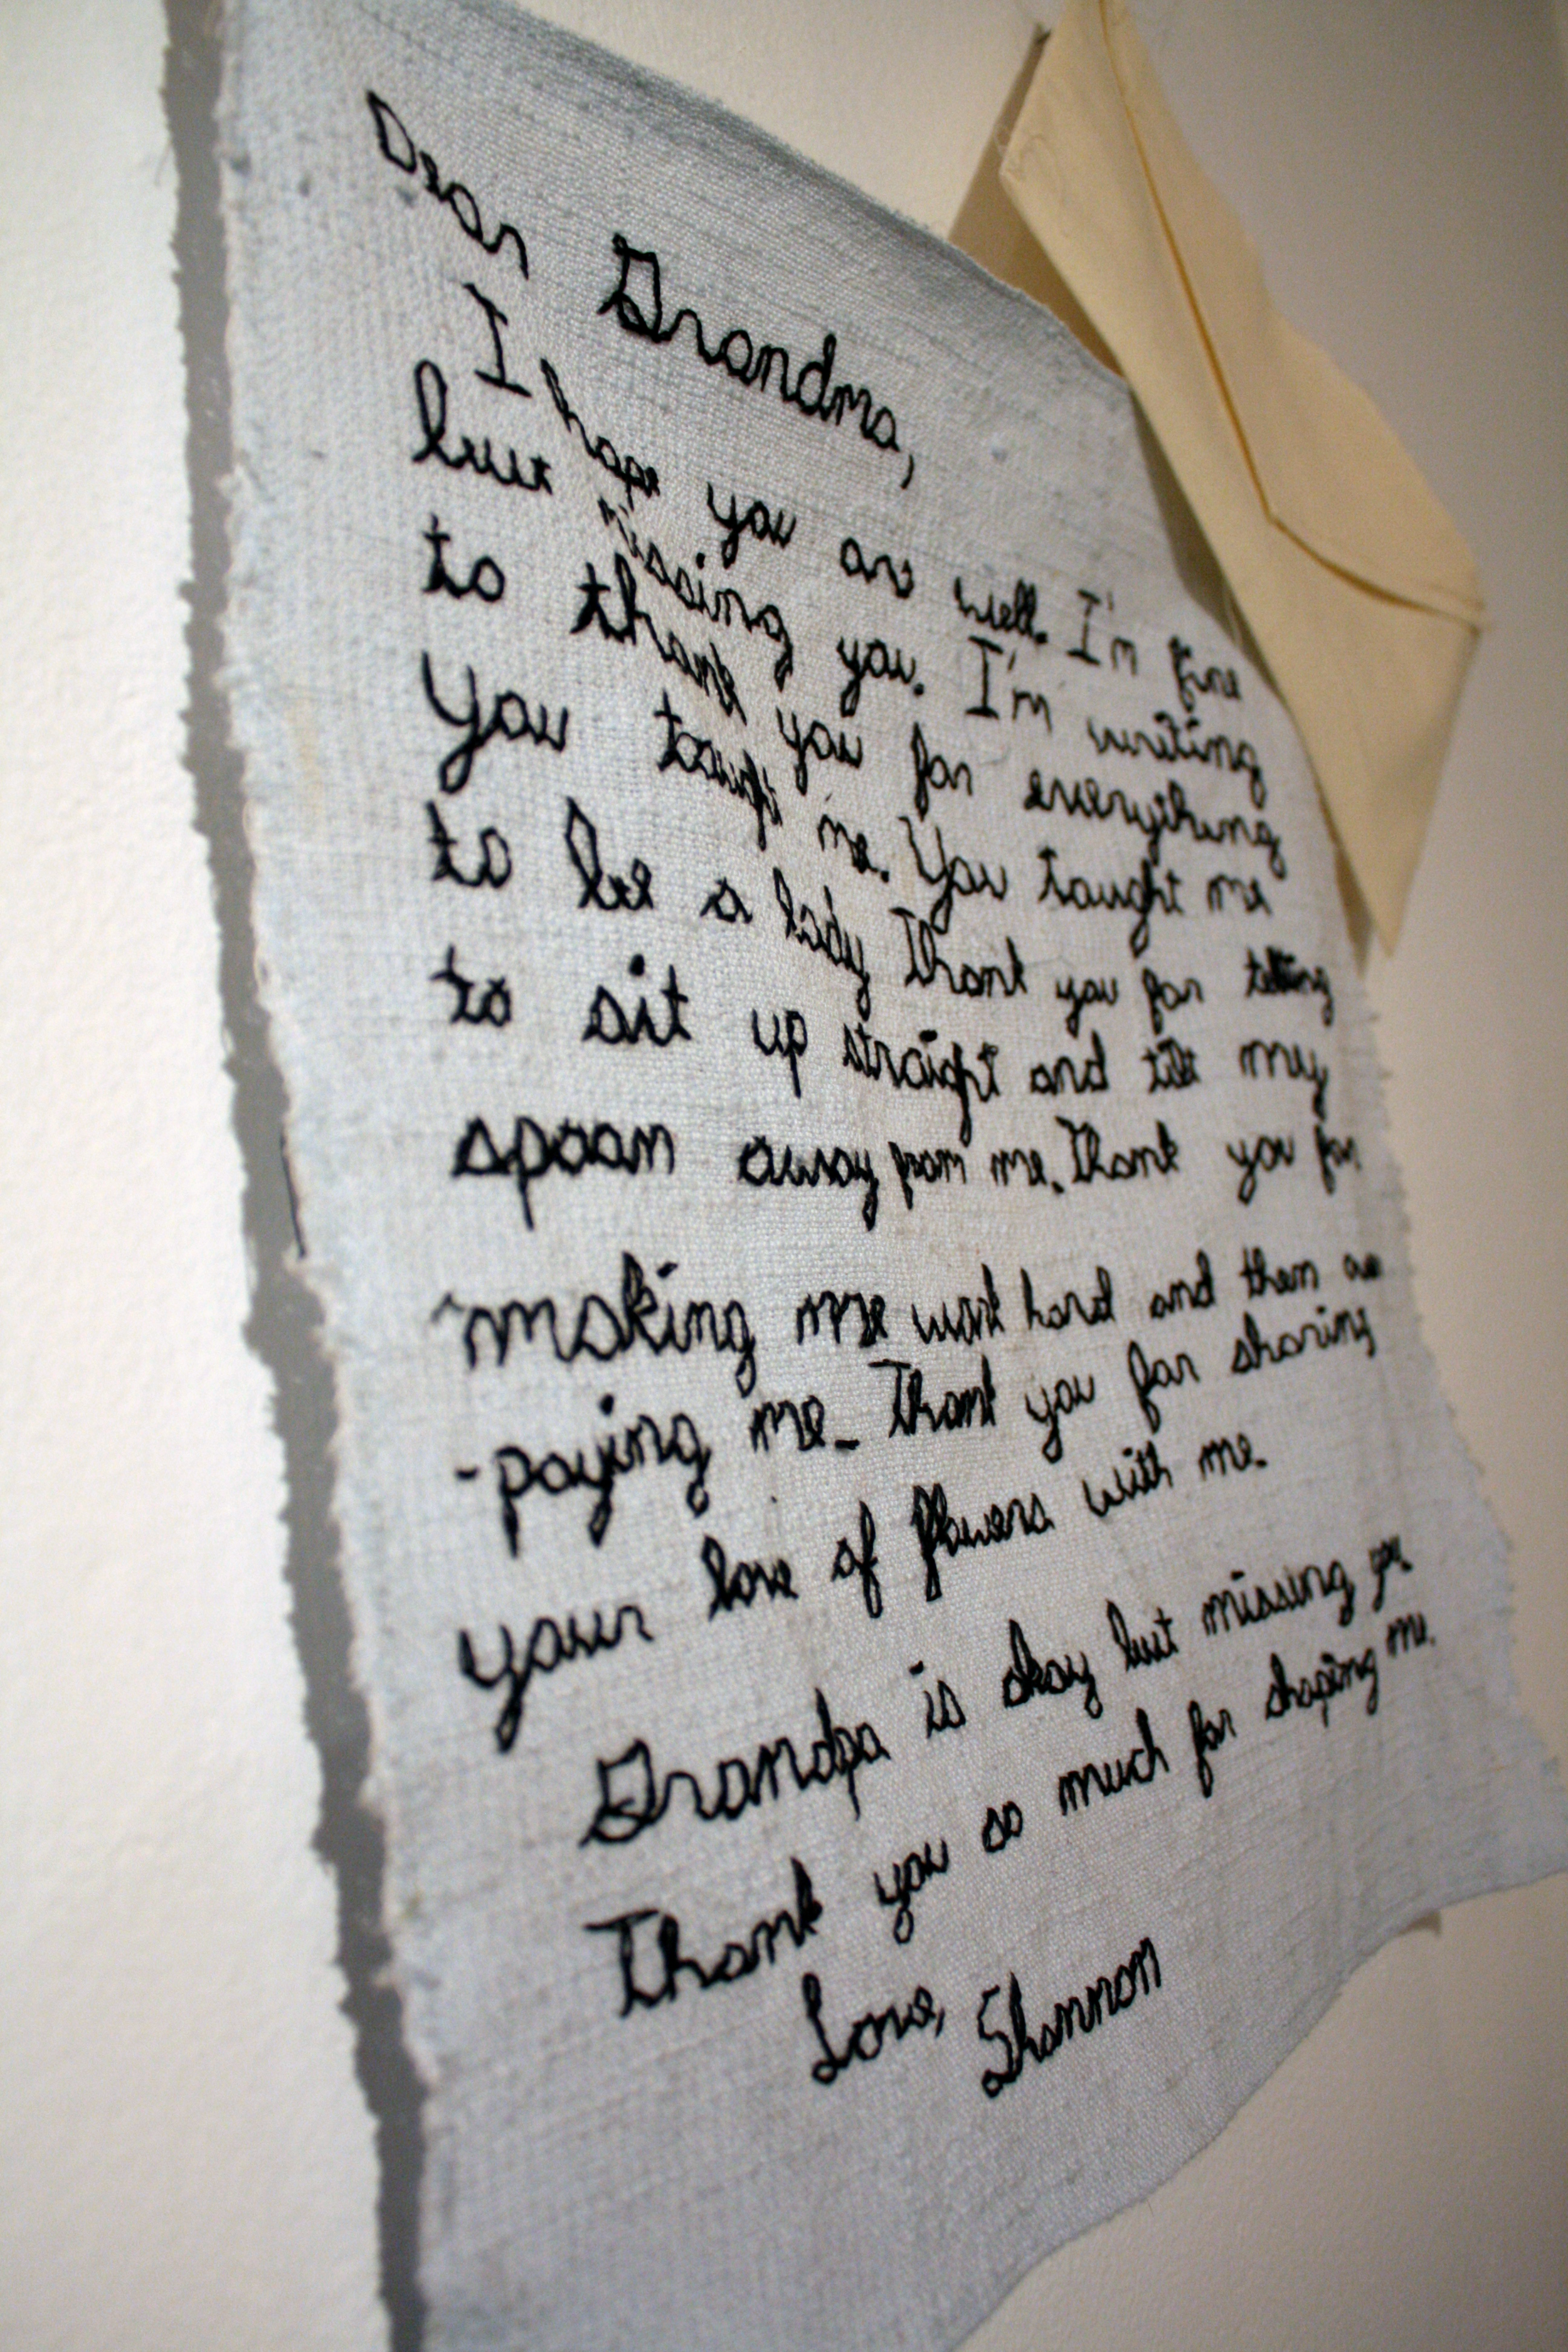 Dear Grandma,
I hope you are well. I'm fine
but missing you. I'm writing
to thank you for everything
you taught me. You taught me
to be a lady Thank you for telling
to sit up straight and tilt my
spoon away from me. Thank you for
making me work hard and then
-paying me. Thank you for sharing
your love of flowers with me.
Grandpa is okay but missing
Thank you so much for shaping me.
Love, Shannon